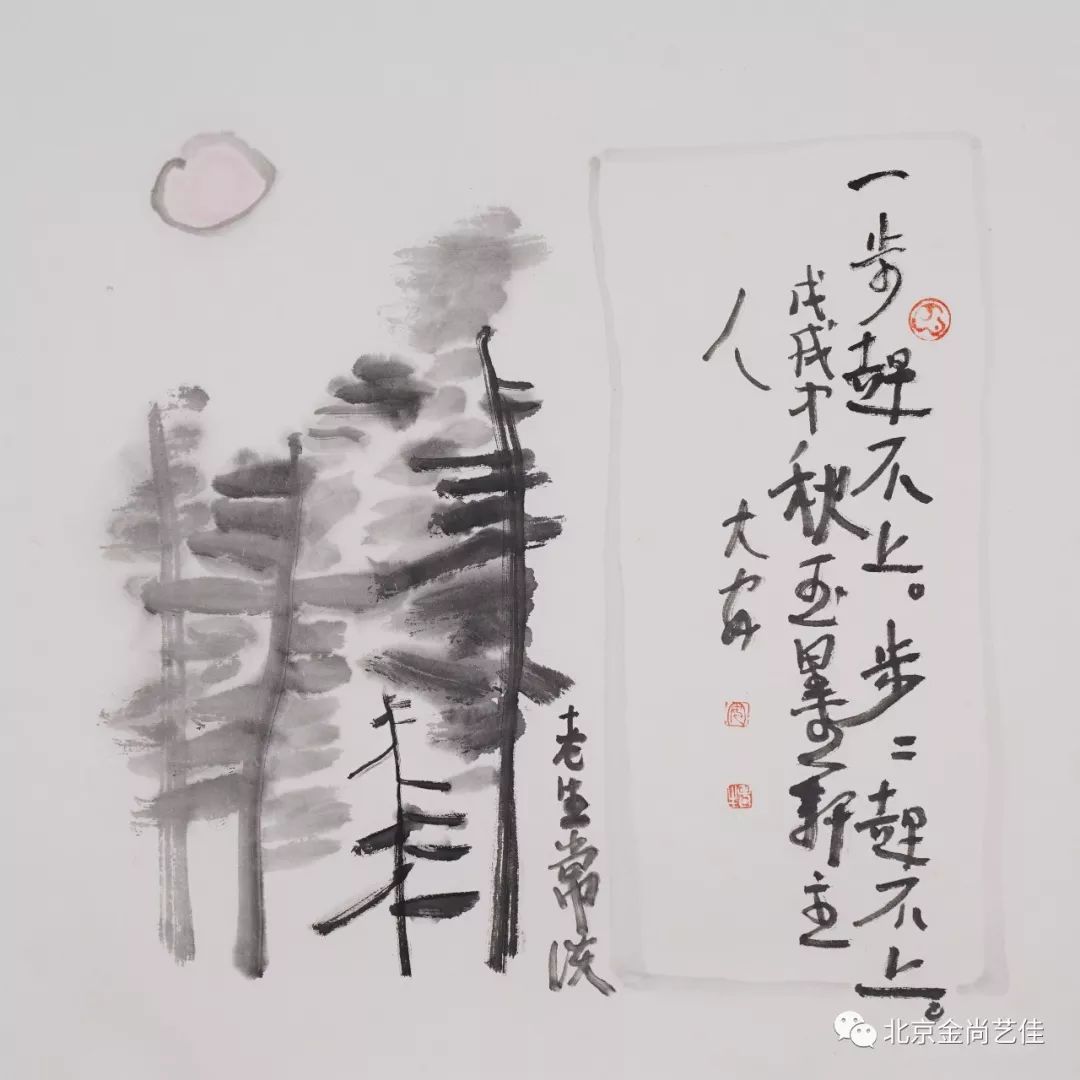 一步趕不上。步二趕不上。
戊戌中秋玉墨轩主
人
大
老生常谈
北京金尚艺佳